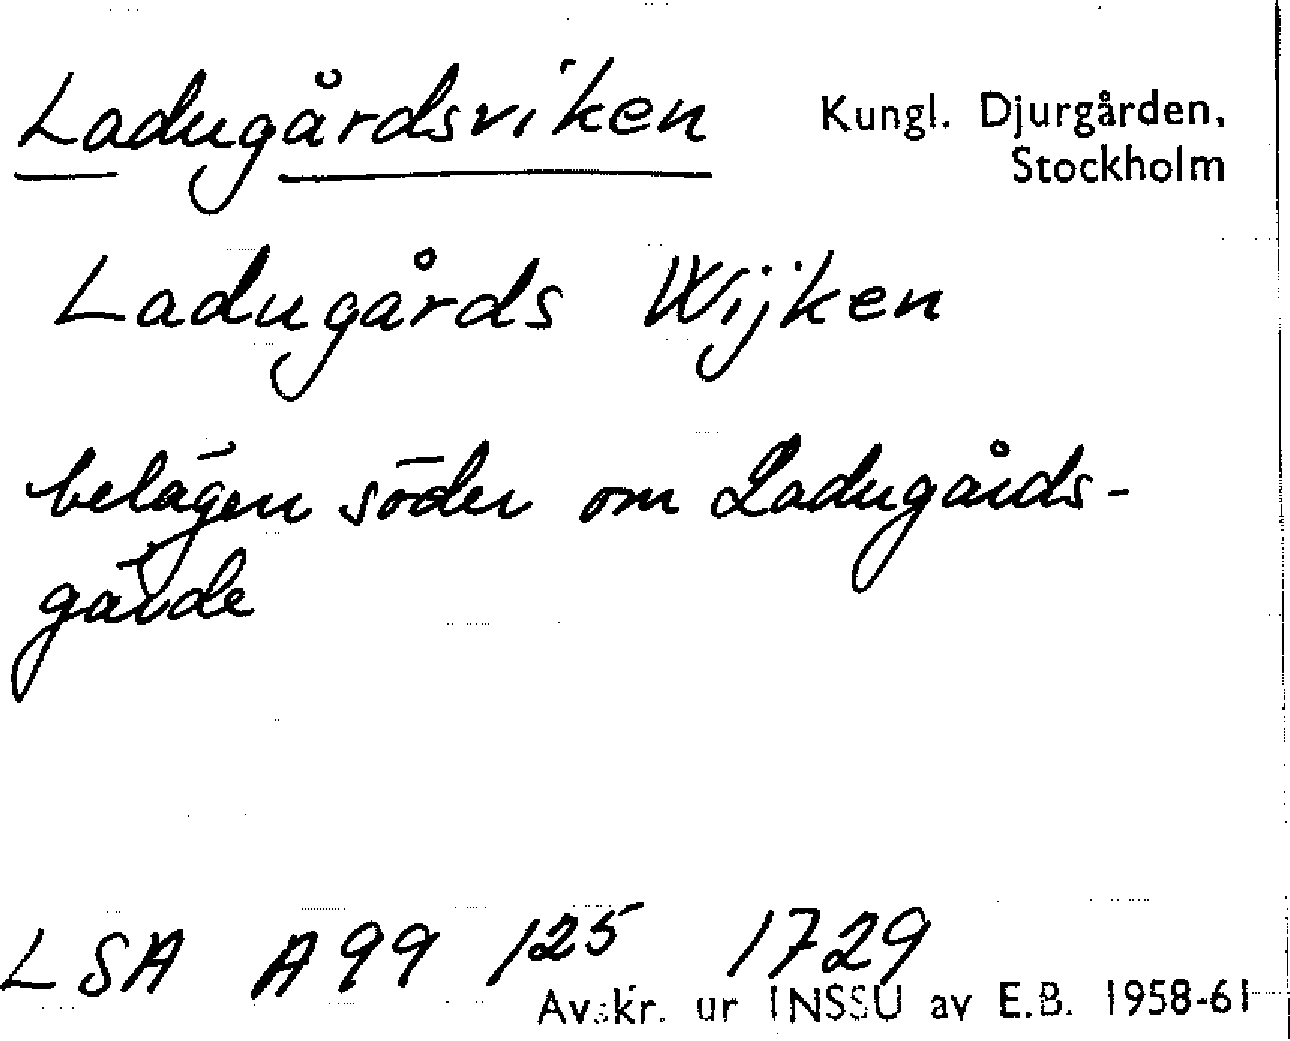 Ladugårdsviken Kungl. Djurgården,
Stockholm
Ladugårds Wijken
belägen söder om Ladugårds-
gärde
LSA A99 125 1729
Avskr. ur INSSU av E.B. 1958-61